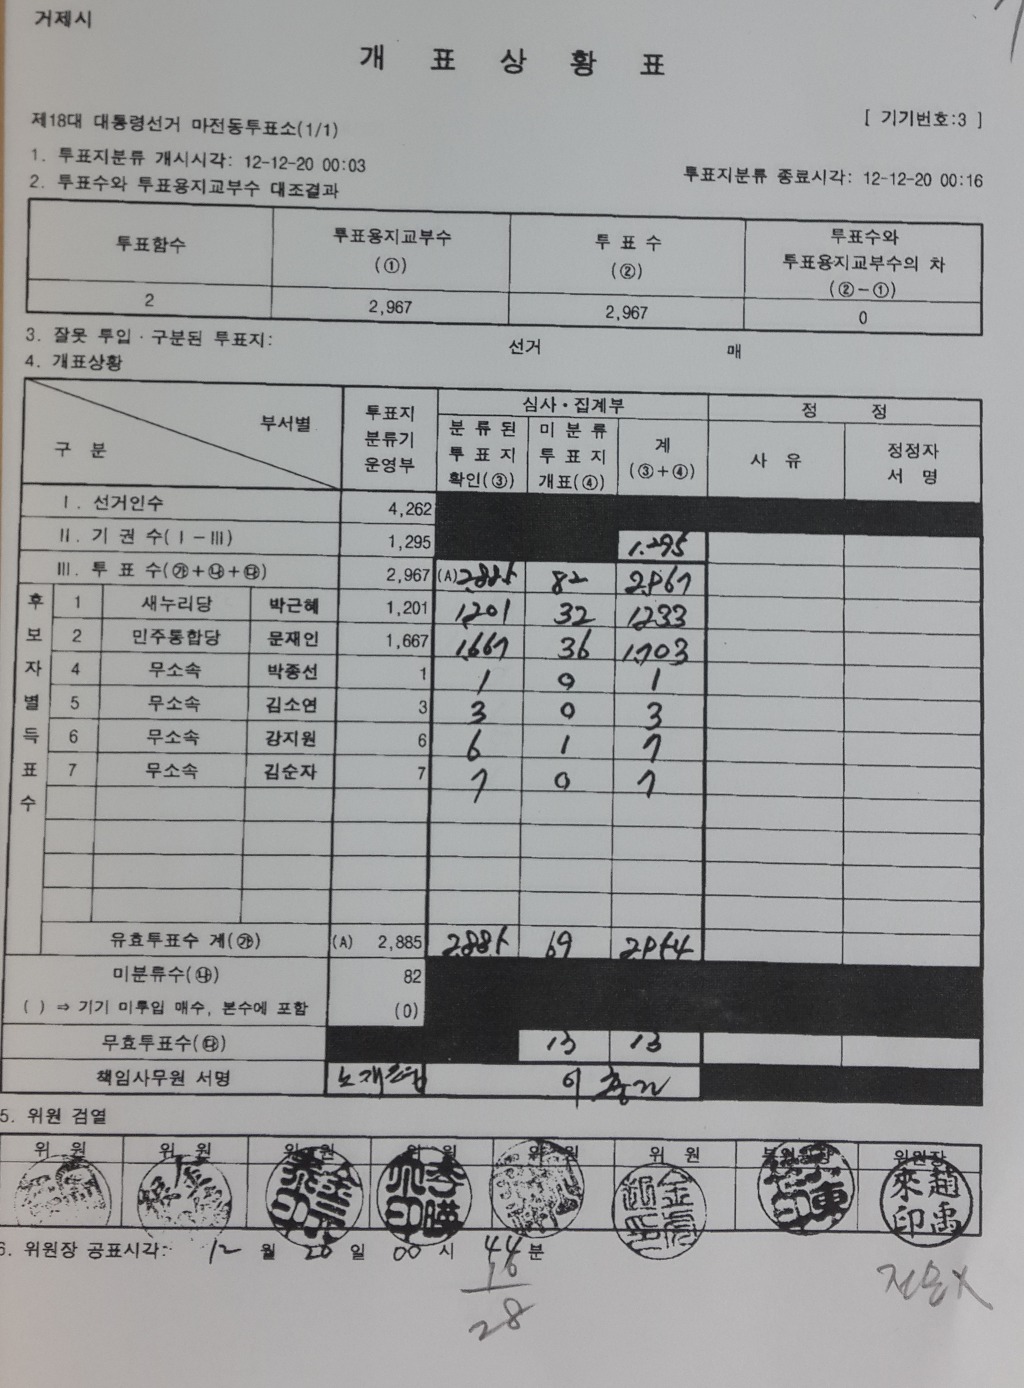 거제시
개 표 상 황 표
제18대 대통령선거 마전동투표소(1/1)
[ 기기번호:3 ]
1. 투표지분류 개시시각: 12-12-20 00:03
투표지분류 종료시각: 12-12-20 00:16
2. 투표수와 투표용지교부수 대조결과
투표함수 투표용지교부수 (①) 투 표 수 (②) 투표수와 투표용지교부수의 차 (②-①)
2 2,967 2,967 0
3. 잘못 투입·구분된 투표지: 선거 매
4. 개표상황
구 분 부서별 투표지 분류기 운영부 심사·집계부 정 정
분 류 된 투 표 지 확인(③) 미 분 류 투 표 지 개표(④) 계 (③+④) 사 유 정정자 서 명
Ⅰ. 선거인수 4,262
Ⅱ. 기 권 수(Ⅰ-Ⅲ) 1,295 1,295
Ⅲ. 투 표 수(㉮+㉯+㉰) 2,967 (A) 2,885 82 2,967
후보자별득표수
1 새누리당 박근혜 1,201 1,201 32 1,233
2 민주통합당 문재인 1,667 1,667 36 1,703
4 무소속 박종선 1 1 0 1
5 무소속 김소연 3 3 0 3
6 무소속 강지원 6 6 1 7
7 무소속 김순자 7 7 0 7
유효투표수 계(㉮) (A) 2,885 2,885 69 2,954
미분류수(㉯) 82
( ) ⇒ 기기 미투입 매수, 본수에 포함 (0)
무효투표수(㉰) 13 13
책임사무원 서명
5. 위원 검열
위 원 위 원 위 원 위 원 위 원 위 원 부위원장 위원장
6. 위원장 공표시각: 12 월 20 일 00 시 44 분
16
28